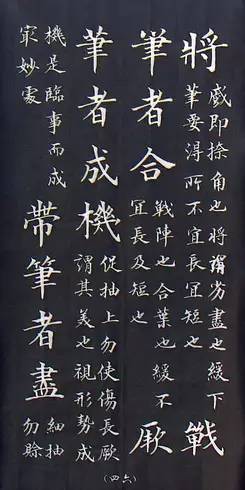 將
戲即捺角也將謂劣盡也緩下
筆要得所不宜長宜短也
戰
筆者合
戰陣也合葉也緩不
宜長及短也
厥
筆者成機
促抽上勿使傷長厥
謂其義也視形勢成
機是臨事而成
㝡妙處
帶筆者盡
細抽
勿賒
(四六)